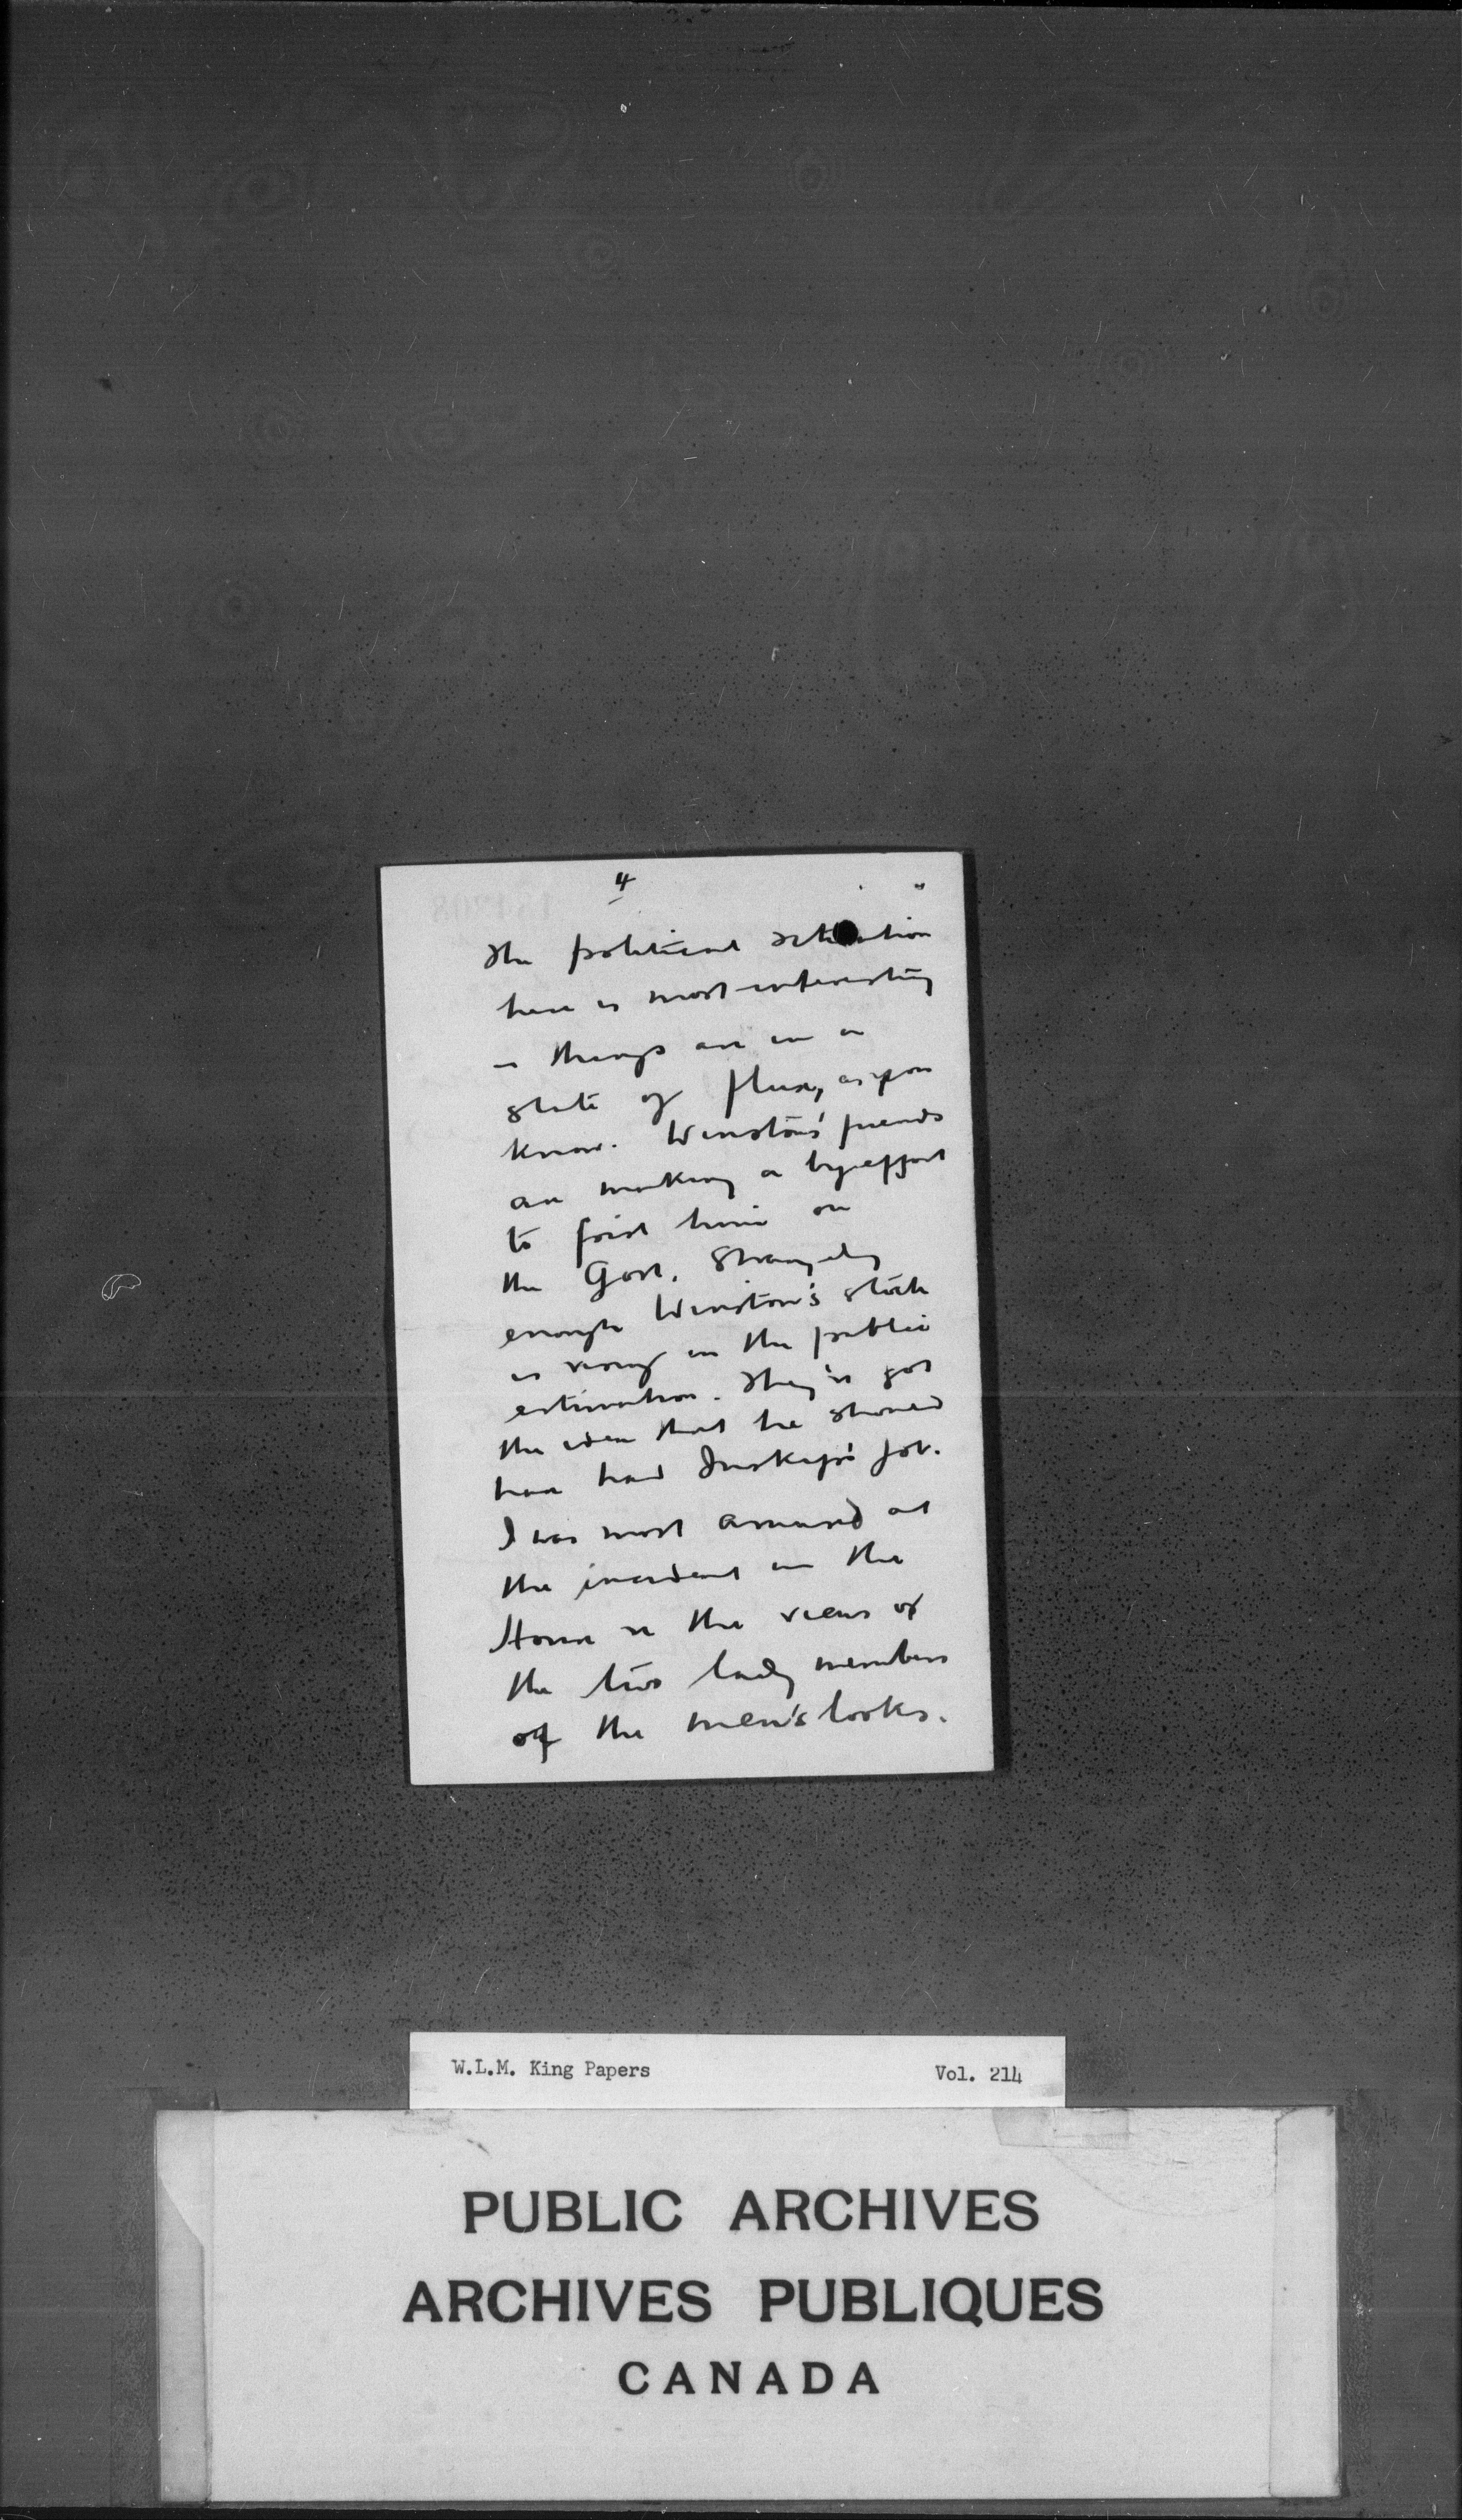 4
The political situation
here is most interesting
– things are in a
state of flux, as you
know. Winston's friends
are making a big effort
to foist him on
the Govt. Strangely
enough Winston's stock
is rising in the public
estimation. They've got
the idea that he should
have had Inskip's job.
I was most amused at
the incident in the
House re the views of
the two lady members
of the men's looks.
W.L.M. King Papers Vol. 214
PUBLIC ARCHIVES
ARCHIVES PUBLIQUES
CANADA